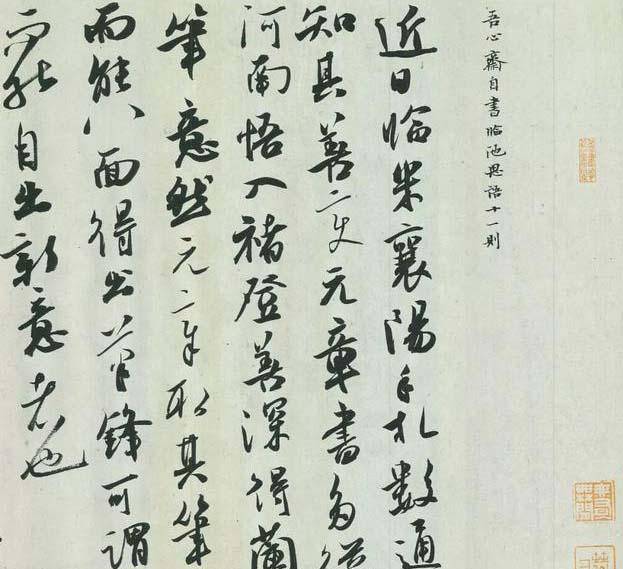 吾心齋自書臨池思語十一則
近日臨米襄陽手札數通
知其善變元章書多從
河南悟入褚登善深得蘭
筆意然元章取其筆
而能八面得出筆鋒可謂
而能自出新意者也